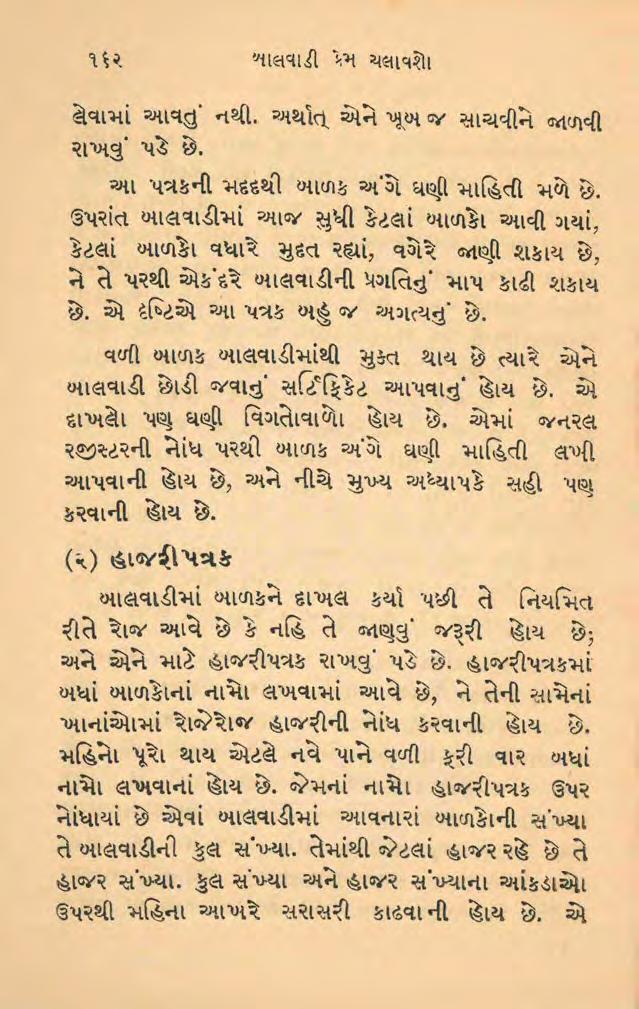 ૧૬૨ બાલવાડી કેમ ચલાવશો
લેવામાં આવતું નથી. અર્થાત્ એને ખૂબ જ સાચવીને જાળવી
રાખવું પડે છે.
આ પત્રકની મદદથી બાળક અંગે ઘણી માહિતી મળે છે.
ઉપરાંત બાલવાડીમાં આજ સુધી કેટલાં બાળકો આવી ગયાં,
કેટલાં બાળકો વધારે મુદત રહ્યાં, વગેરે જાણી શકાય છે,
ને તે પરથી એકંદરે બાલવાડીની પ્રગતિનું માપ કાઢી શકાય
છે. એ દૃષ્ટિએ આ પત્રક બહુ જ અગત્યનું છે.
વળી બાળક બાલવાડીમાંથી મુક્ત થાય છે ત્યારે એને
બાલવાડી છોડી જવાનું સર્ટિફિકેટ આપવાનું હોય છે. એ
દાખલો પણ ઘણી વિગતોવાળો હોય છે. એમાં જનરલ
રજીસ્ટરની નોંધ પરથી બાળક અંગે ઘણી માહિતી લખી
આપવાની હોય છે, અને નીચે મુખ્ય અધ્યાપકે સહી પણ
કરવાની હોય છે.
(૨) હાજરીપત્રક
બાલવાડીમાં બાળકને દાખલ કર્યા પછી તે નિયમિત
રીતે રોજ આવે છે કે નહિ તે જાણવું જરૂરી હોય છે;
અને એને માટે હાજરીપત્રક રાખવું પડે છે. હાજરીપત્રકમાં
બધાં બાળકોનાં નામો લખવામાં આવે છે, ને તેની સામેનાં
ખાનાંઓમાં રોજેરોજ હાજરીની નોંધ કરવાની હોય છે.
મહિનો પૂરો થાય એટલે નવે પાને વળી ફરી વાર બધાં
નામો લખવાનાં હોય છે. જેમનાં નામો હાજરીપત્રક ઉપર
નોંધાયાં છે એવાં બાલવાડીમાં આવનારાં બાળકોની સંખ્યા
તે બાલવાડીની કુલ સંખ્યા. તેમાંથી જેટલાં હાજર રહે છે તે
હાજર સંખ્યા. કુલ સંખ્યા અને હાજર સંખ્યાના આંકડાઓ
ઉપરથી મહિના આખરે સરાસરી કાઢવાની હોય છે. એ